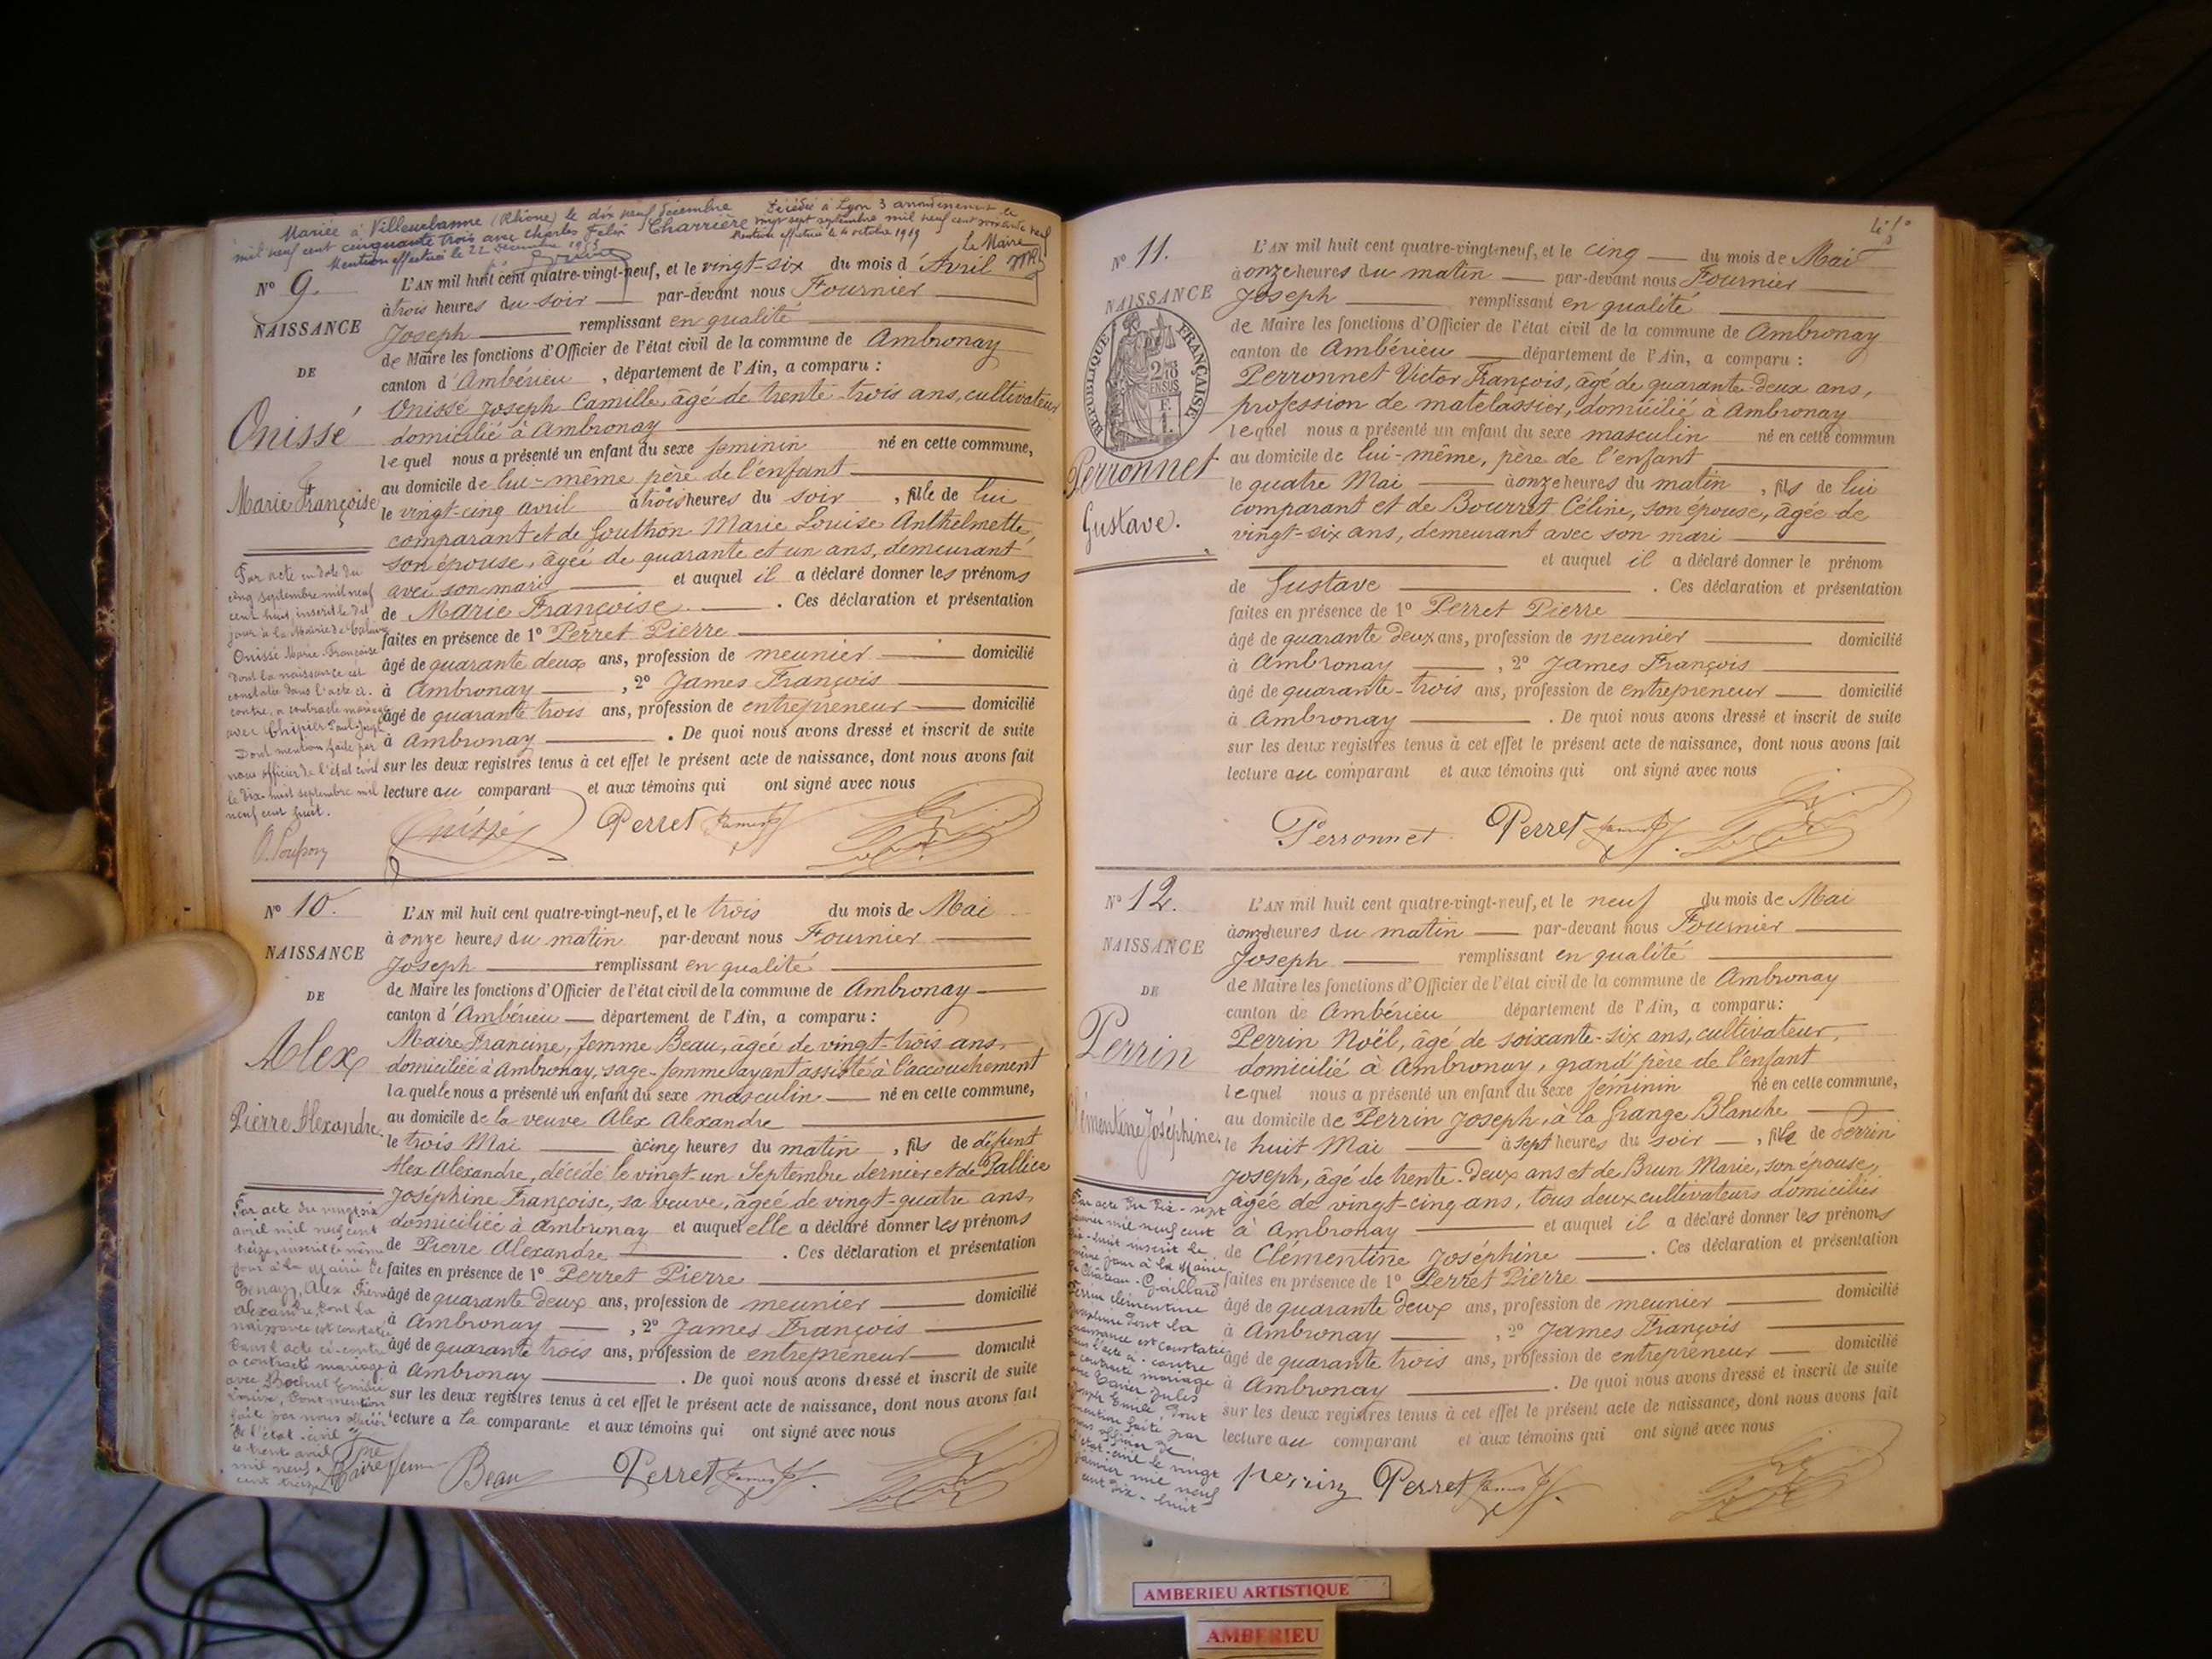 Mariée à Villeurbanne (Rhône) le dix neuf décembre
mil neuf cent cinquante trois avec Charles Felix Charrière
Mention effectuée le 22 Décembre 1953
Décédée à Lyon 3 arrondissement le
vingt sept septembre mil neuf cent soixante neuf
Mention effectuée le 4 octobre 1969
Le Maire
N° 9.
NAISSANCE
DE
Onissé
Marie Françoise
L'AN mil huit cent quatre-vingt-neuf, et le vingt-six du mois d'Avril
à trois heures du soir par-devant nous Fournier
Joseph remplissant en qualité
de Maire les fonctions d'Officier de l'état civil de la commune de Ambronay
canton d'Ambérieu, département de l'Ain, a comparu :
Onissé Joseph Camille, âgé de trente-trois ans, cultivateur
domicilié à Ambronay
lequel nous a présenté un enfant du sexe féminin né en cette commune,
au domicile de lui-même père de l'enfant
le vingt-cinq avril à trois heures du soir, fille de lui
comparant et de Goulthon Marie Louise Anthelmette,
son épouse, âgée de quarante et un ans, demeurant
avec son mari et auquel il a déclaré donner les prénoms
de Marie Françoise. Ces déclaration et présentation
faites en présence de 1° Perret Pierre
âgé de quarante deux ans, profession de meunier domicilié
à Ambronay, 2° James François
âgé de quarante trois ans, profession de entrepreneur domicilié
à Ambronay. De quoi nous avons dressé et inscrit de suite
sur les deux registres tenus à cet effet le présent acte de naissance, dont nous avons fait
lecture au comparant et aux témoins qui ont signé avec nous
Onissé Perret James
Par acte en date du
cinq septembre mil neuf
cent huit, inscrit le dit
jour à la Mairie de
Onissé Marie-Françoise
dont la naissance est
constatée dans l'acte ci-
contre, a contracté mariage
avec Chépier Paul-Joseph
Dont mention faite par
nous officier de l'état civil
le dix-huit septembre mil
neuf cent huit.
N° 10.
NAISSANCE
DE
Alex
Pierre Alexandre
L'AN mil huit cent quatre-vingt-neuf, et le trois du mois de Mai
à onze heures du matin par-devant nous Fournier
Joseph remplissant en qualité
de Maire les fonctions d'Officier de l'état civil de la commune de Ambronay
canton d'Ambérieu département de l'Ain, a comparu :
Maire Francine, femme Beau, âgée de vingt-trois ans,
domiciliée à Ambronay, sage-femme ayant assisté à l'accouchement
laquelle nous a présenté un enfant du sexe masculin né en cette commune,
au domicile de la veuve Alex Alexandre
le trois Mai à cinq heures du matin, fils de défunt
Alex Alexandre, décédé le vingt-un Septembre dernier et de Pallice
Joséphine Françoise, sa veuve, âgée de vingt-quatre ans,
domiciliée à Ambronay et auquel elle a déclaré donner les prénoms
de Pierre Alexandre. Ces déclaration et présentation
faites en présence de 1° Perret Pierre
âgé de quarante deux ans, profession de meunier domicilié
à Ambronay, 2° James François
âgé de quarante trois ans, profession de entrepreneur domicilié
à Ambronay. De quoi nous avons dressé et inscrit de suite
sur les deux registres tenus à cet effet le présent acte de naissance, dont nous avons fait
lecture à la comparante et aux témoins qui ont signé avec nous
Fne Maire femme Beau Perret James
Par acte du vingt six
avril mil neuf cent
treize, inscrit le même
jour à la Mairie de
Genay, Alex Pierre
Alexandre, dont la
naissance est constatée
dans l'acte ci-contre
a contracté mariage
avec Bochut Emilie
Louise, Dont mention
faite par nous officier
de l'état-civil
le trente avril
mil neuf
cent treize
N° 11.
NAISSANCE
RÉPUBLIQUE FRANÇAISE
Perronnet
Gustave.
L'AN mil huit cent quatre-vingt-neuf, et le cinq du mois de Mai
à onze heures du matin par-devant nous Fournier
Joseph remplissant en qualité
de Maire les fonctions d'Officier de l'état civil de la commune de Ambronay
canton de Ambérieu département de l'Ain, a comparu :
Perronnet Victor François, âgé de quarante-deux ans,
profession de matelassier, domicilié à Ambronay
lequel nous a présenté un enfant du sexe masculin né en cette commun
au domicile de lui-même, père de l'enfant
le quatre Mai à onze heures du matin, fils de lui
comparant et de Bourret Céline, son épouse, âgée de
vingt-six ans, demeurant avec son mari
et auquel il a déclaré donner le prénom
de Gustave. Ces déclaration et présentation
faites en présence de 1° Perret Pierre
âgé de quarante deux ans, profession de meunier domicilié
à Ambronay, 2° James François
âgé de quarante-trois ans, profession de entrepreneur domicilié
à Ambronay. De quoi nous avons dressé et inscrit de suite
sur les deux registres tenus à cet effet le présent acte de naissance, dont nous avons fait
lecture au comparant et aux témoins qui ont signé avec nous
Perronnet Perret James
N° 12.
NAISSANCE
DE
Perrin
Clémentine Joséphine
L'AN mil huit cent quatre-vingt-neuf, et le neuf du mois de Mai
à onze heures du matin par-devant nous Fournier
Joseph remplissant en qualité
de Maire les fonctions d'Officier de l'état civil de la commune de Ambronay
canton de Ambérieu département de l'Ain, a comparu:
Perrin Noël, âgé de soixante-six ans, cultivateur,
domicilié à Ambronay, grand'père de l'enfant
lequel nous a présenté un enfant du sexe féminin né en cette commune,
au domicile de Perrin Joseph, à la Grange Blanche
le huit Mai à sept heures du soir, fille de Perrin
Joseph, âgé de trente-deux ans et de Brun Marie, son épouse,
âgée de vingt-cinq ans, tous deux cultivateurs domiciliés
à Ambronay et auquel il a déclaré donner les prénoms
de Clémentine Joséphine. Ces déclaration et présentation
faites en présence de 1° Perret Pierre
âgé de quarante deux ans, profession de meunier domicilié
à Ambronay, 2° James François
âgé de quarante trois ans, profession de entrepreneur domicilié
à Ambronay. De quoi nous avons dressé et inscrit de suite
sur les deux registres tenus à cet effet le présent acte de naissance, dont nous avons fait
lecture au comparant et aux témoins qui ont signé avec nous
Perrin Perret James
Par acte du dix-sept
janvier mil neuf cent
dix-huit inscrit le
même jour à la Mairie
de Château-Gaillard
Perrin Clémentine
Joséphine dont la
naissance est constatée
dans l'acte ci-contre
a contracté mariage
avec Tavier Jules
Joseph Emile, dont
mention faite par
nous officier de
l'état-civil le vingt
janvier mil neuf
cent dix-huit
AMBERIEU ARTISTIQUE
AMBERIEU